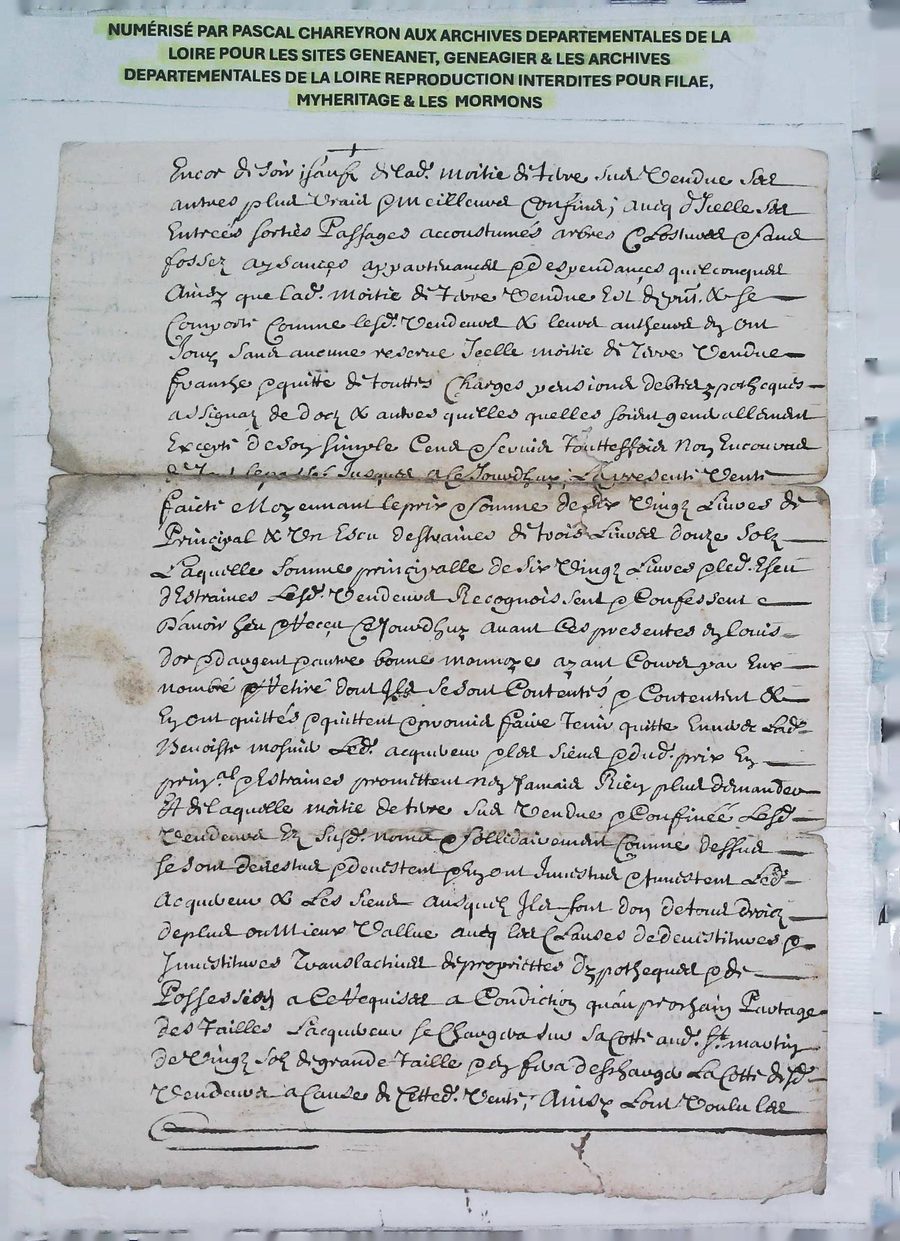 NUMÉRISÉ PAR PASCAL CHAREYRON AUX ARCHIVES DEPARTEMENTALES DE LA
LOIRE POUR LES SITES GENEANET, GENEAGIER & LES ARCHIVES
DEPARTEMENTALES DE LA LOIRE REPRODUCTION INTERDITES POUR FILAE,
MYHERITAGE & LES MORMONS
Encor de soir sauf de lad. moitie de terre sus Vendue ses
autres plus vrais & meilleures Confins; aucq d'Icelle ses
Entreés sorties Passages accoustumés arbres Clostures &
fossez aysances appartenances & despendances quelconques
Ainsy que lad. moitie de terre Vendue Est & se
Comporte Comme lesd. Vendeurs & leurs autheurs en ont
Jouy sans aucune reserve Icelle moitie de Terre Vendue
franche & quitte de touttes Charges pensions debtes ypotheques
assignaz de doct & autres quelles quelles soient generallement
Excepté de son simple Cens & servis touttesfois non Encourus
de tout le passé Jusques a ce Jourdhuy; La presente Vente
faicte Moyennant le prix & somme de six Vingz Livres de
Principal & Un Escu destraines de trois Livres douze solz
Laquelle somme principalle de six Vingz Livres & led. Escu
d'Estraines Lesd. Vendeurs Recognoissent & Confessent
D'avoir heu & Reçeu Cejourdhuy avant Ces presentes en louis
dor & dargent & autre bonne monnoye ayant Cours par Eux
nombré & Retiré dont Ils se sont Contentés & Contentent &
En ont quittés & quittent & promis faire tenir quitte Envers Lad.
Benoiste Led. acquereur & les siens & dud. prix En
prinal & Estraines promettent n'en Jamais Rien plus demander
Et de laquelle moitie de terre sus Vendue & Confinée Lesd.
Vendeurs En susd. noms & sollidairement Comme dessus
se sont devestus & devestent & En ont Investus & Investent Led.
Acquereur & Les siens ausquelz Ils font don de tous droicz
de plus ou Mieux Vallue aucq les Clauses de devestitures &
Investitures Translactives de proprietes d'ypotheques & de
Possession a Ce Requises a Condiction qu'au prochain Partage
des Tailles L'acquereur se Chargera sur sa Cotte aud. St. martin
de Vingz solz de grande Taille & en fera descharge La Cotte desd.
Vendeurs a Cause de Cetted. Vente; Ainsy L'ont Voulu les